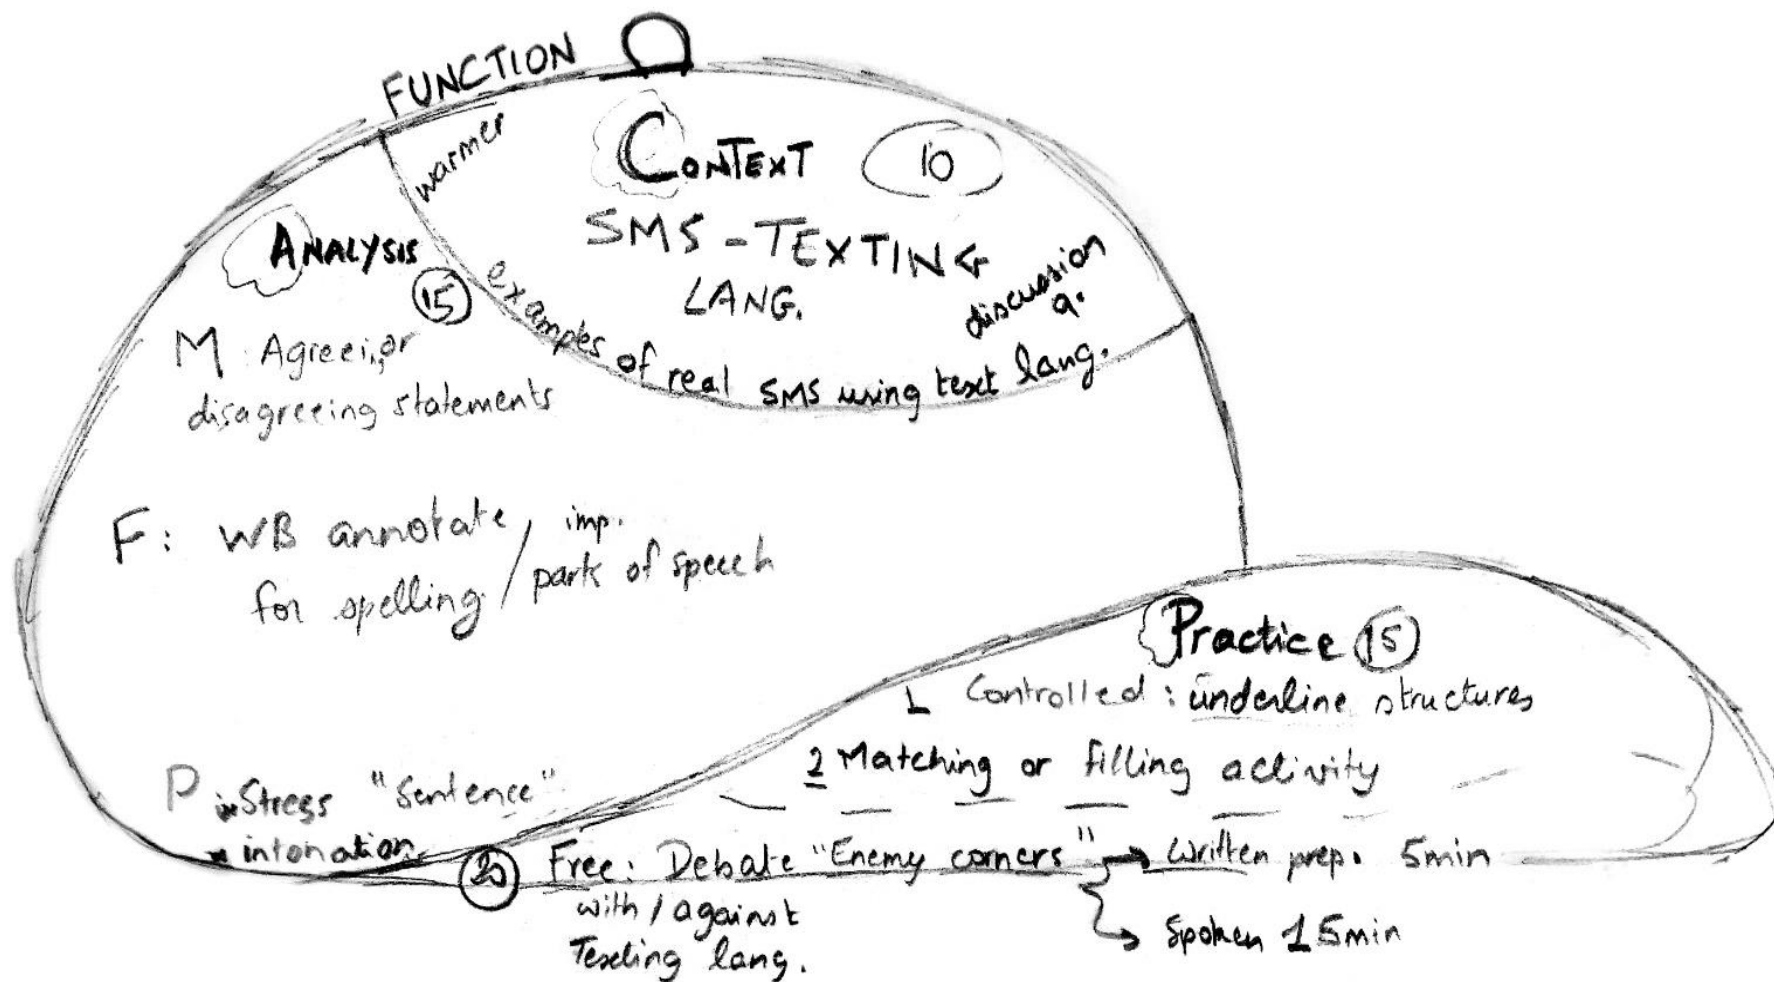 FUNCTION
warmer
CONTEXT 10
SMS - TEXTING
LANG.
discussion
q.
examples of real SMS using text lang.
ANALYSIS
15
M: Agreeing or
disagreeing statements
F: WB annotate / imp.
for spelling / parts of speech
P * Stress "Sentence"
* intonation
Practice 15
1 Controlled: underline structures
2 Matching or filling activity
20 Free: Debate "Enemy corners" → written prep. 5min
with / against
Texting lang.
→ Spoken 15min